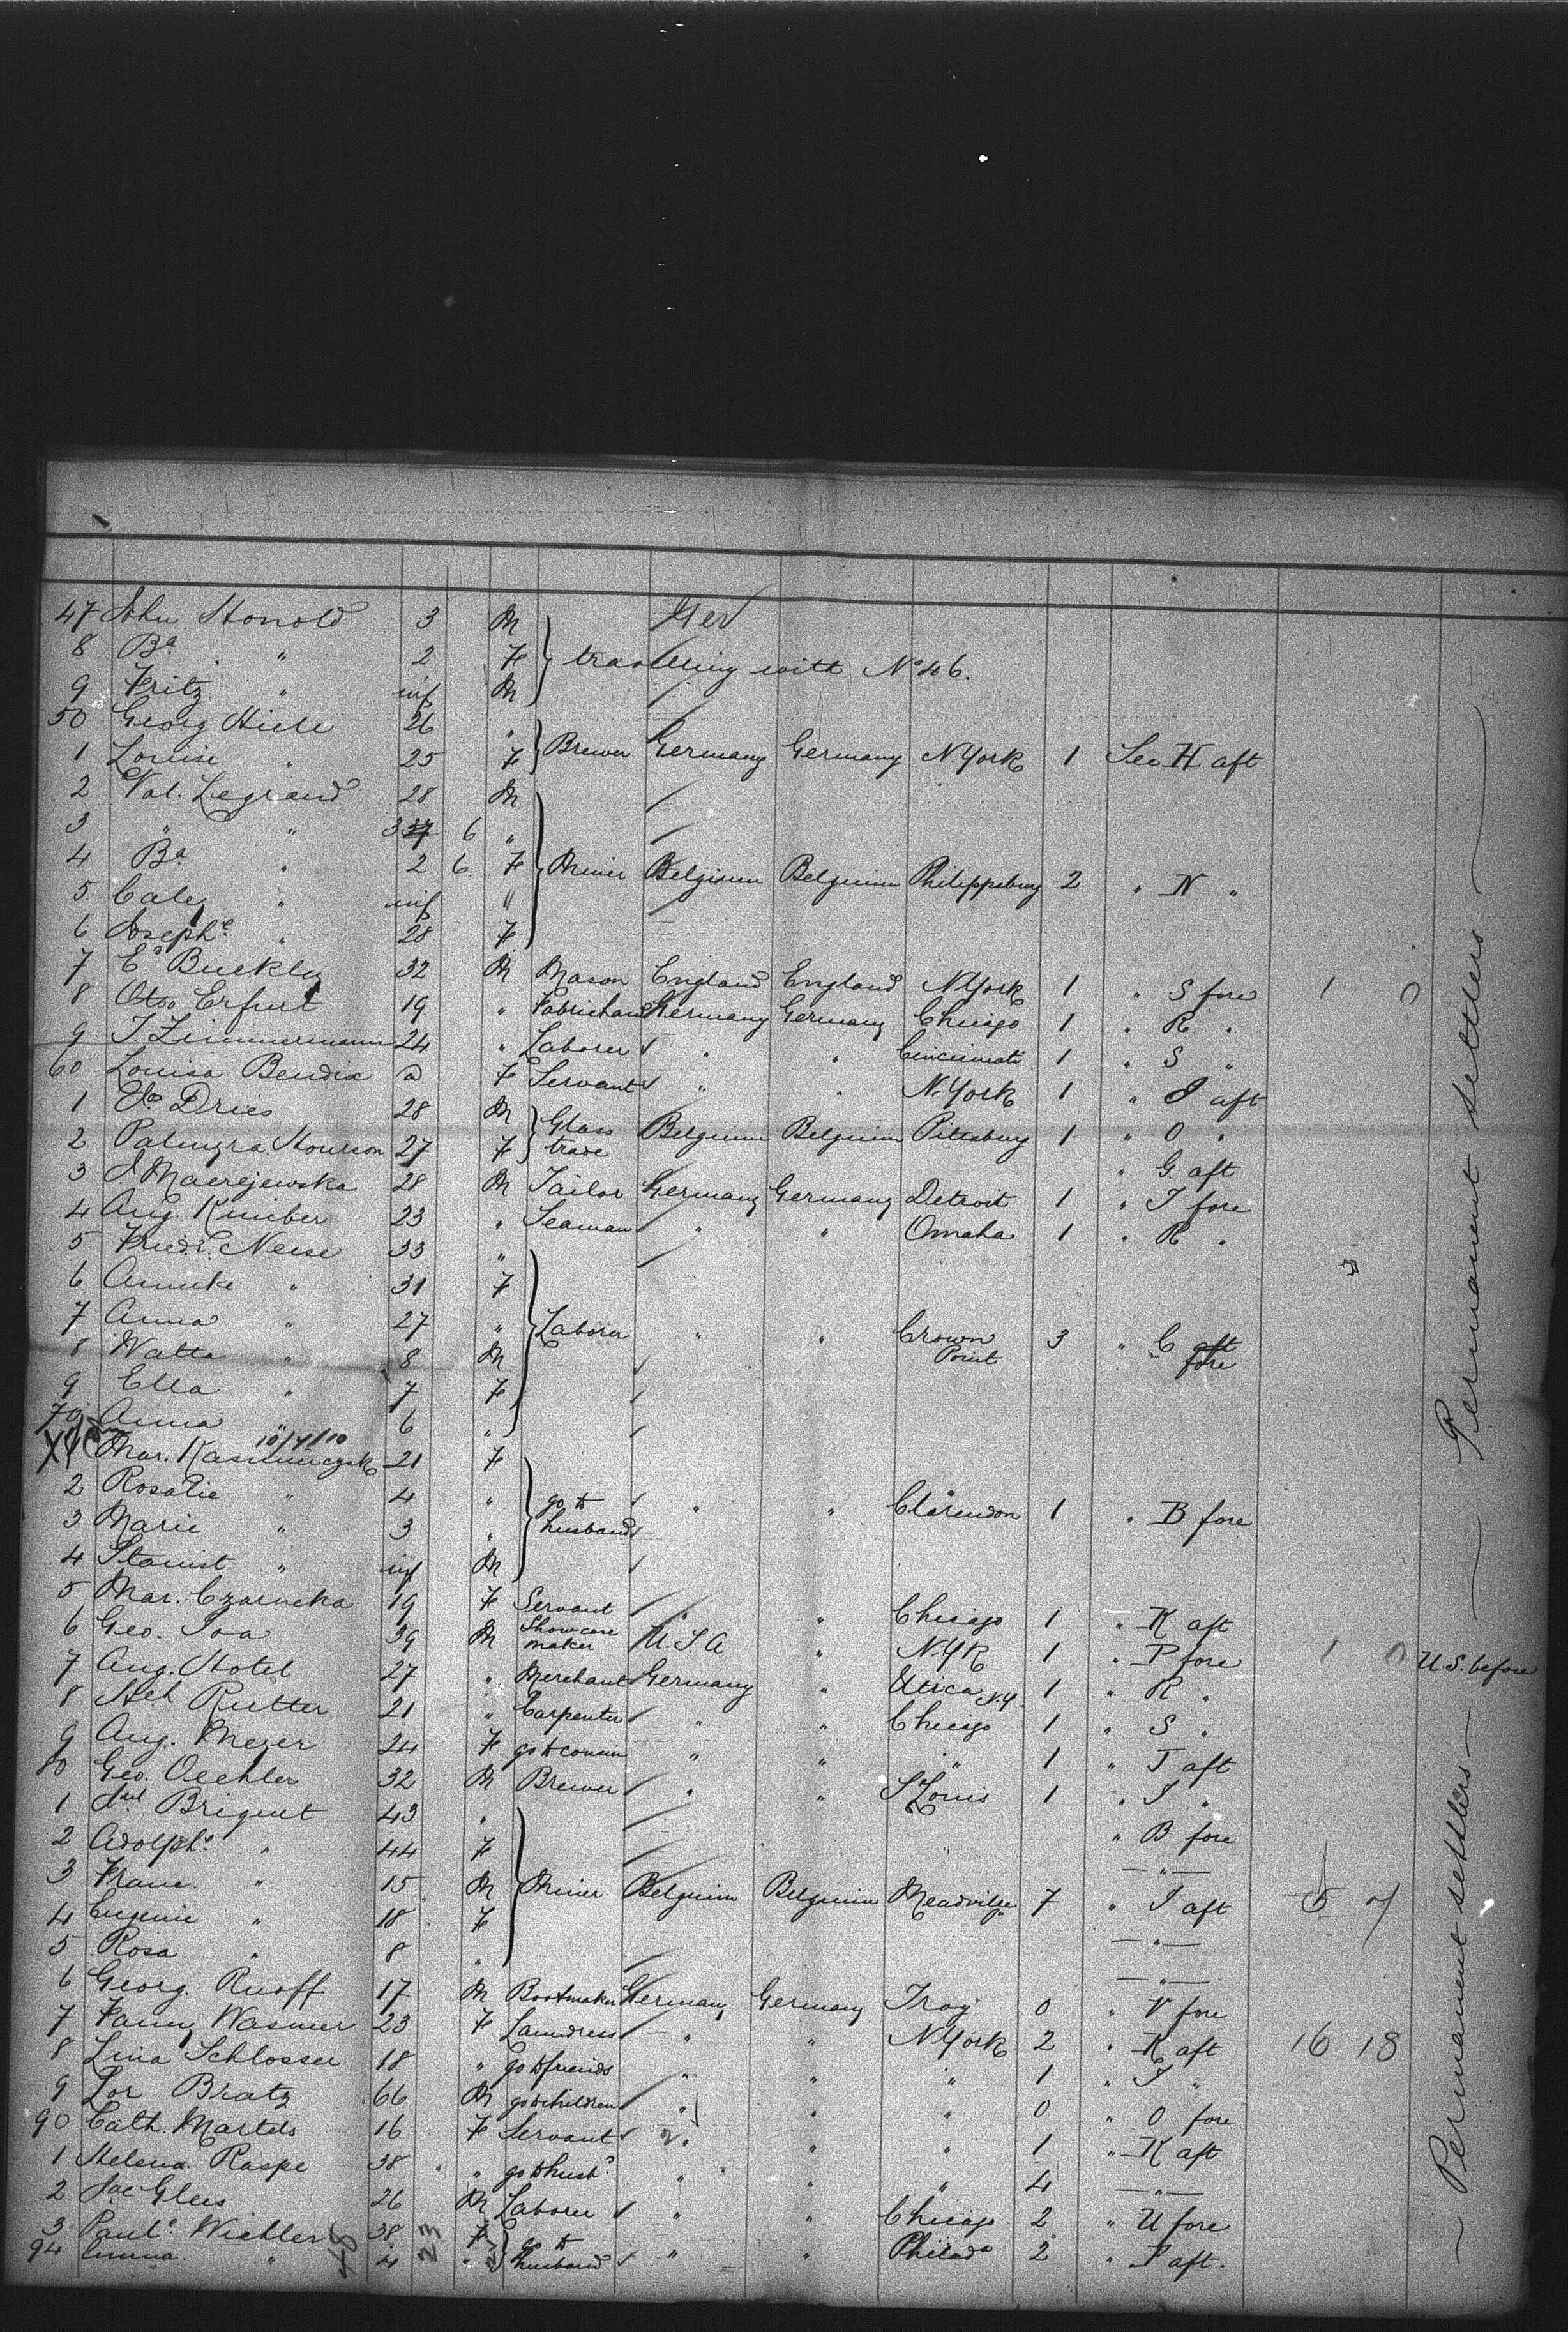 47 John Honold 3 M Ger
8 Ba " 2 F } travelling with No 46.
9 Fritz " inf M
50 Georg Hiele 26 "
1 Louise " 25 F } Brewer Germany Germany N York 1 See H aft
2 Val. Legrand 28 M
3 " " 3 6 "
4 Ba " 2 6 F } Miner Belgium Belgium Philippsburg 2 " N "
5 " inf "
6 Josephe " 28 F
7 Ed Buckley 32 M Mason England England N York 1 " S fore 1 0
8 Otto Erfurt 19 " Germany Germany Chicago 1 " R "
9 J Zimmermann 24 " Laborer " " Cincinnati 1 " S "
60 Louisa Bendix a F Servant " " N. York 1 " J aft
1 Dries 28 M } Glass Belgium Belgium Pittsburg 1 " O "
2 Palmyra Hourson 27 F } trade " G aft
3 J Macrejewska 28 M Tailor Germany Germany Detroit 1 " T fore
4 Aug. Kniber 23 " Seaman " " Omaha 1 " R "
5 Friedr. Neise 33 "
6 Annuke " 31 F
7 Anna " 27 " } Laborer " " Crown Point 3 " C aft fore
8 Watta " 8 M
9 Ella " 7 F
70 Anna " 6 "
10/4/10
Mar. Kasimirczak 21 F
2 Rosalie " 4 " } go to
3 Marie " 3 " husband " " Clarendon 1 " B fore
4 Stanist " inf M
5 Mar. Czarnecka 19 F Servant " " Chicago 1 " K aft
6 Geo. Joa 39 M Showcase maker U.S.A " N.Y.K 1 " P fore 1 0 U.S. before
7 Aug. Hotel 27 " Merchant Germany " Utica N.Y. 1 " R "
8 Hch Rutter 21 " Carpenter " " Chicago 1 " S "
9 Aug. Meyer 24 F go to cousin " " " 1 " T aft
80 Geo. Oechler 32 M Brewer " " St Louis 1 " J "
1 Briquet 43 " " B fore
2 Adolphe " 44 F — " —
3 Franc. " 15 M } Miner Belgium Belgium Meadville 7 " J aft 5 7
4 Eugenie " 18 F — " —
5 Rosa " 8 " — " —
6 Georg. Ruoff 17 M Bootmaker Germany Germany Troy 0 " V fore
7 Fanny Wasmer 23 F Laundress " " N York 2 " K aft 16 18
8 Lina Schlosser 18 " go to friends " " " 1 " J "
9 Lor Bratz 66 M go to children " " " 0 " O fore
90 Cath. Martels 16 F Servant " " " 1 " K aft
1 Helena Raspe 38 " go to husbd " " " 4 — " —
2 Jac Glees 26 M Laborer " " Chicago 2 " U fore
3 Paule Wichler 38 F } go to
94 Emma " 4 " husband " " Philada 2 " J aft.
48 23
— Permanent settlers —
— Permanent settlers —